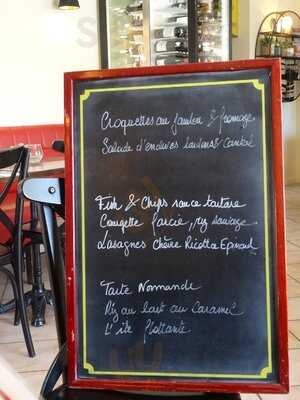 Croquettes au Jambon & fromage
Salade d'endives lardons Cantal
Fish & Chips sauce tartare
Courgette farcie, riz sauvage
Lasagnes Chèvre Ricotta Epinard
Tarte Normande
Riz au lait au Caramel
L'ile flottante